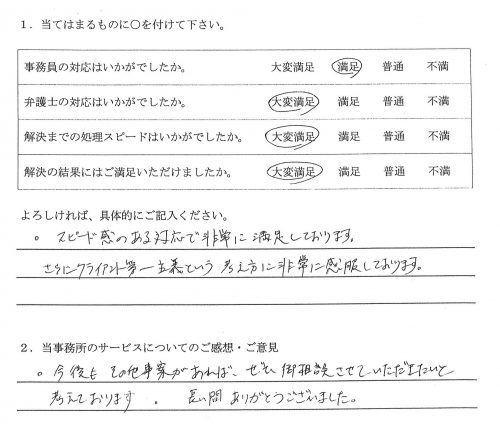 1．当てはまるものに○を付けて下さい。
事務員の対応はいかがでしたか。 大変満足 満足 普通 不満
弁護士の対応はいかがでしたか。 大変満足 満足 普通 不満
解決までの処理スピードはいかがでしたか。 大変満足 満足 普通 不満
解決の結果にはご満足いただけましたか。 大変満足 満足 普通 不満
よろしければ、具体的にご記入ください。
。スピード感のある対応で非常に満足しております。
さらにクライアント第一主義という考え方に非常に感服しております。
2．当事務所のサービスについてのご感想・ご意見
。今後も その他事案があれば、ぜひ御相談させていただきたいと
考えております。 長い間ありがとうございました。